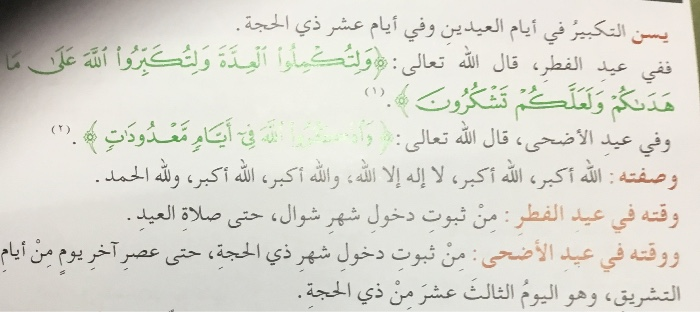 يسن التكبيرُ في أيام العيدينِ وفي أيام عشر ذي الحجة.
ففي عيدِ الفطرِ، قال الله تعالى: ﴿وَلِتُكْمِلُوا۟ ٱلْعِدَّةَ وَلِتُكَبِّرُوا۟ ٱللَّهَ عَلَىٰ مَا
هَدَىٰكُمْ وَلَعَلَّكُمْ تَشْكُرُونَ﴾.(١)
وفي عيدِ الأضحى، قال الله تعالى: ﴿ ٱللَّهَ فِىٓ أَيَّامٍ مَّعْدُودَٰتٍ﴾.(٢)
وصفته: الله أكبر، الله أكبر، لا إله إلا الله، والله أكبر، الله أكبر، ولله الحمد.
وقته في عيدِ الفطرِ: مِنْ ثبوتِ دخولِ شهرِ شوال، حتى صلاةِ العيدِ.
ووقته في عيدِ الأضحى: مِنْ ثبوتِ دخولِ شهرِ ذي الحجةِ، حتى عصرِ آخرِ يومٍ مِنْ أيامِ
التشريقِ، وهو اليومُ الثالثَ عشرَ مِنْ ذي الحجةِ.